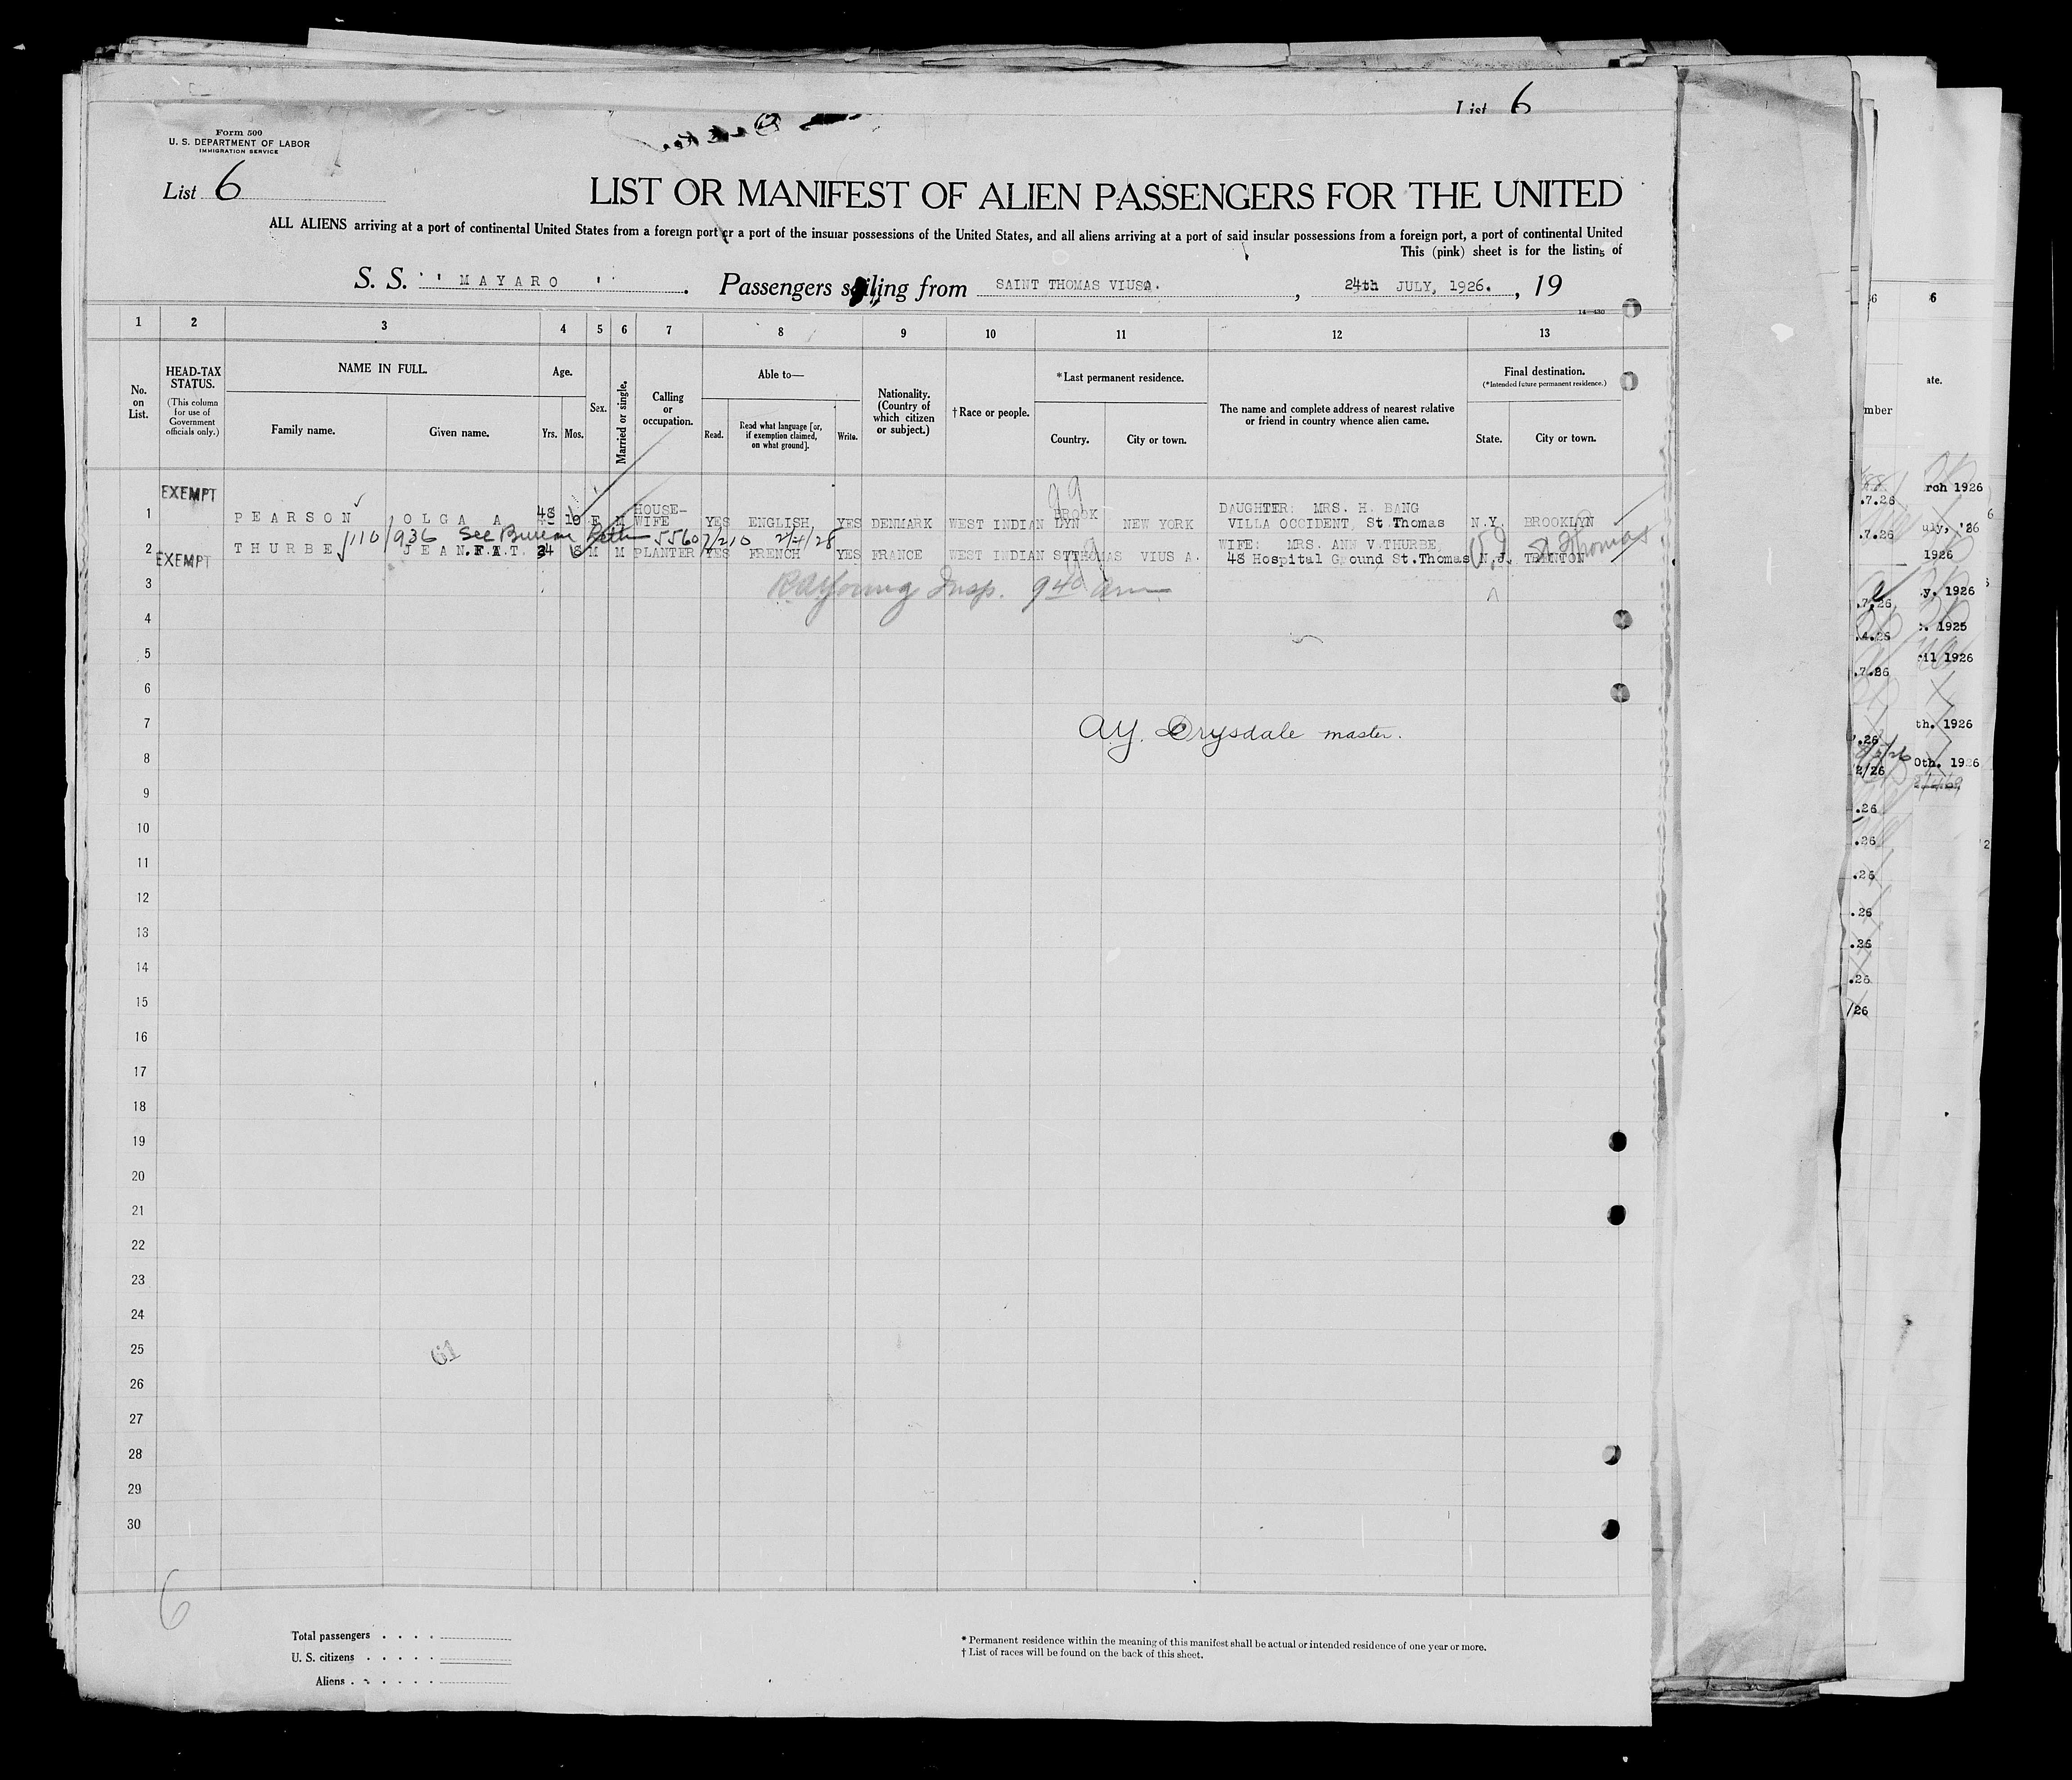 List 6
Form 500
U. S. DEPARTMENT OF LABOR
IMMIGRATION SERVICE
List 6
LIST OR MANIFEST OF ALIEN PASSENGERS FOR THE UNITED
ALL ALIENS arriving at a port of continental United States from a foreign port or a port of the insular possessions of the United States, and all aliens arriving at a port of said insular possessions from a foreign port, a port of continental United
This (pink) sheet is for the listing of
S. S. " MAYARO " . Passengers sailing from SAINT THOMAS VIUSA. , 24th JULY, 1926. , 19
14—430
1 2 3 4 5 6 7 8 9 10 11 12 13
No. on List.
HEAD-TAX STATUS.
(This column for use of Government officials only.)
NAME IN FULL.
Family name. Given name.
Age.
Yrs. Mos.
Sex.
Married or single.
Calling or occupation.
Able to—
Read. Read what language [or, if exemption claimed, on what ground]. Write.
Nationality. (Country of which citizen or subject.)
†Race or people.
*Last permanent residence.
Country. City or town.
The name and complete address of nearest relative or friend in country whence alien came.
Final destination.
(*Intended future permanent residence.)
State. City or town.
EXEMPT
1 PEARSON OLGA A 48 10 F M HOUSE-WIFE YES ENGLISH, YES DENMARK WEST INDIAN BROOKLYN NEW YORK DAUGHTER: MRS. H. BANG VILLA OCCIDENT, St.Thomas N.Y. BROOKLYN
110/936 See Bureau 55607/210 2/4/28
2 THURBE JEAN.F.A.T. 34 M M PLANTER YES FRENCH YES FRANCE WEST INDIAN STTHOMAS VIUS A. WIFE: MRS. ANN V.THURBE, 48 Hospital Ground St.Thomas N.J. TRENTON St Thomas
EXEMPT
3
RAYoung Insp. 9 40 am
4
5
6
7
A.Y. Drysdale master.
8
9
10
11
12
13
14
15
16
17
18
19
20
21
22
23
24
25
61
26
27
28
29
30
6
Total passengers
U. S. citizens
Aliens
* Permanent residence within the meaning of this manifest shall be actual or intended residence of one year or more.
† List of races will be found on the back of this sheet.
6
ate.
mber
rch 1926
.7.26
uly, '26
.7.26
1926
y. 1926
.7.26
. 1925
.4.26
il 1926
.7.26
th. 1926
.26
0th. 1926
2/26
.26
.26
.26
.26
.26
.26
/26